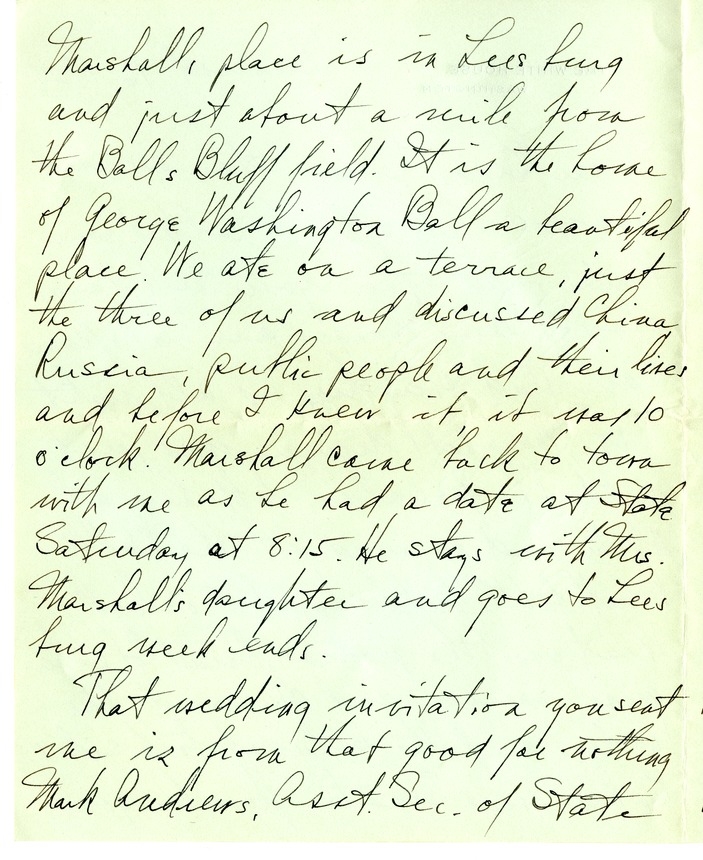 Marshall's place is in Lees burg
and just about a mile from
the Balls Bluff field. It is the home
of George Washington Ball a beautiful
place. We ate on a terrace, just
the three of us and discussed China
Russia, public people and their lives
and before I knew it, it was 10
o'clock! Marshall came back to town
with me as he had a date at State
Saturday at 8:15. He stays with Mrs.
Marshall's daughter and goes to Lees
burg week ends.
That wedding invitation you sent
me is from that good for nothing
Mark Andrews, Asst. Sec. of State